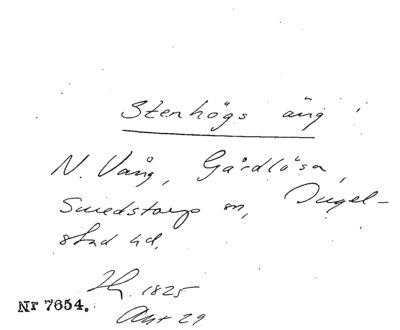 Stenhögs äng
N. Vång, Gårdlösa,
Smedstorps sn, Ingel-
stad hd.
1825
Akt 29
Nr 7654.